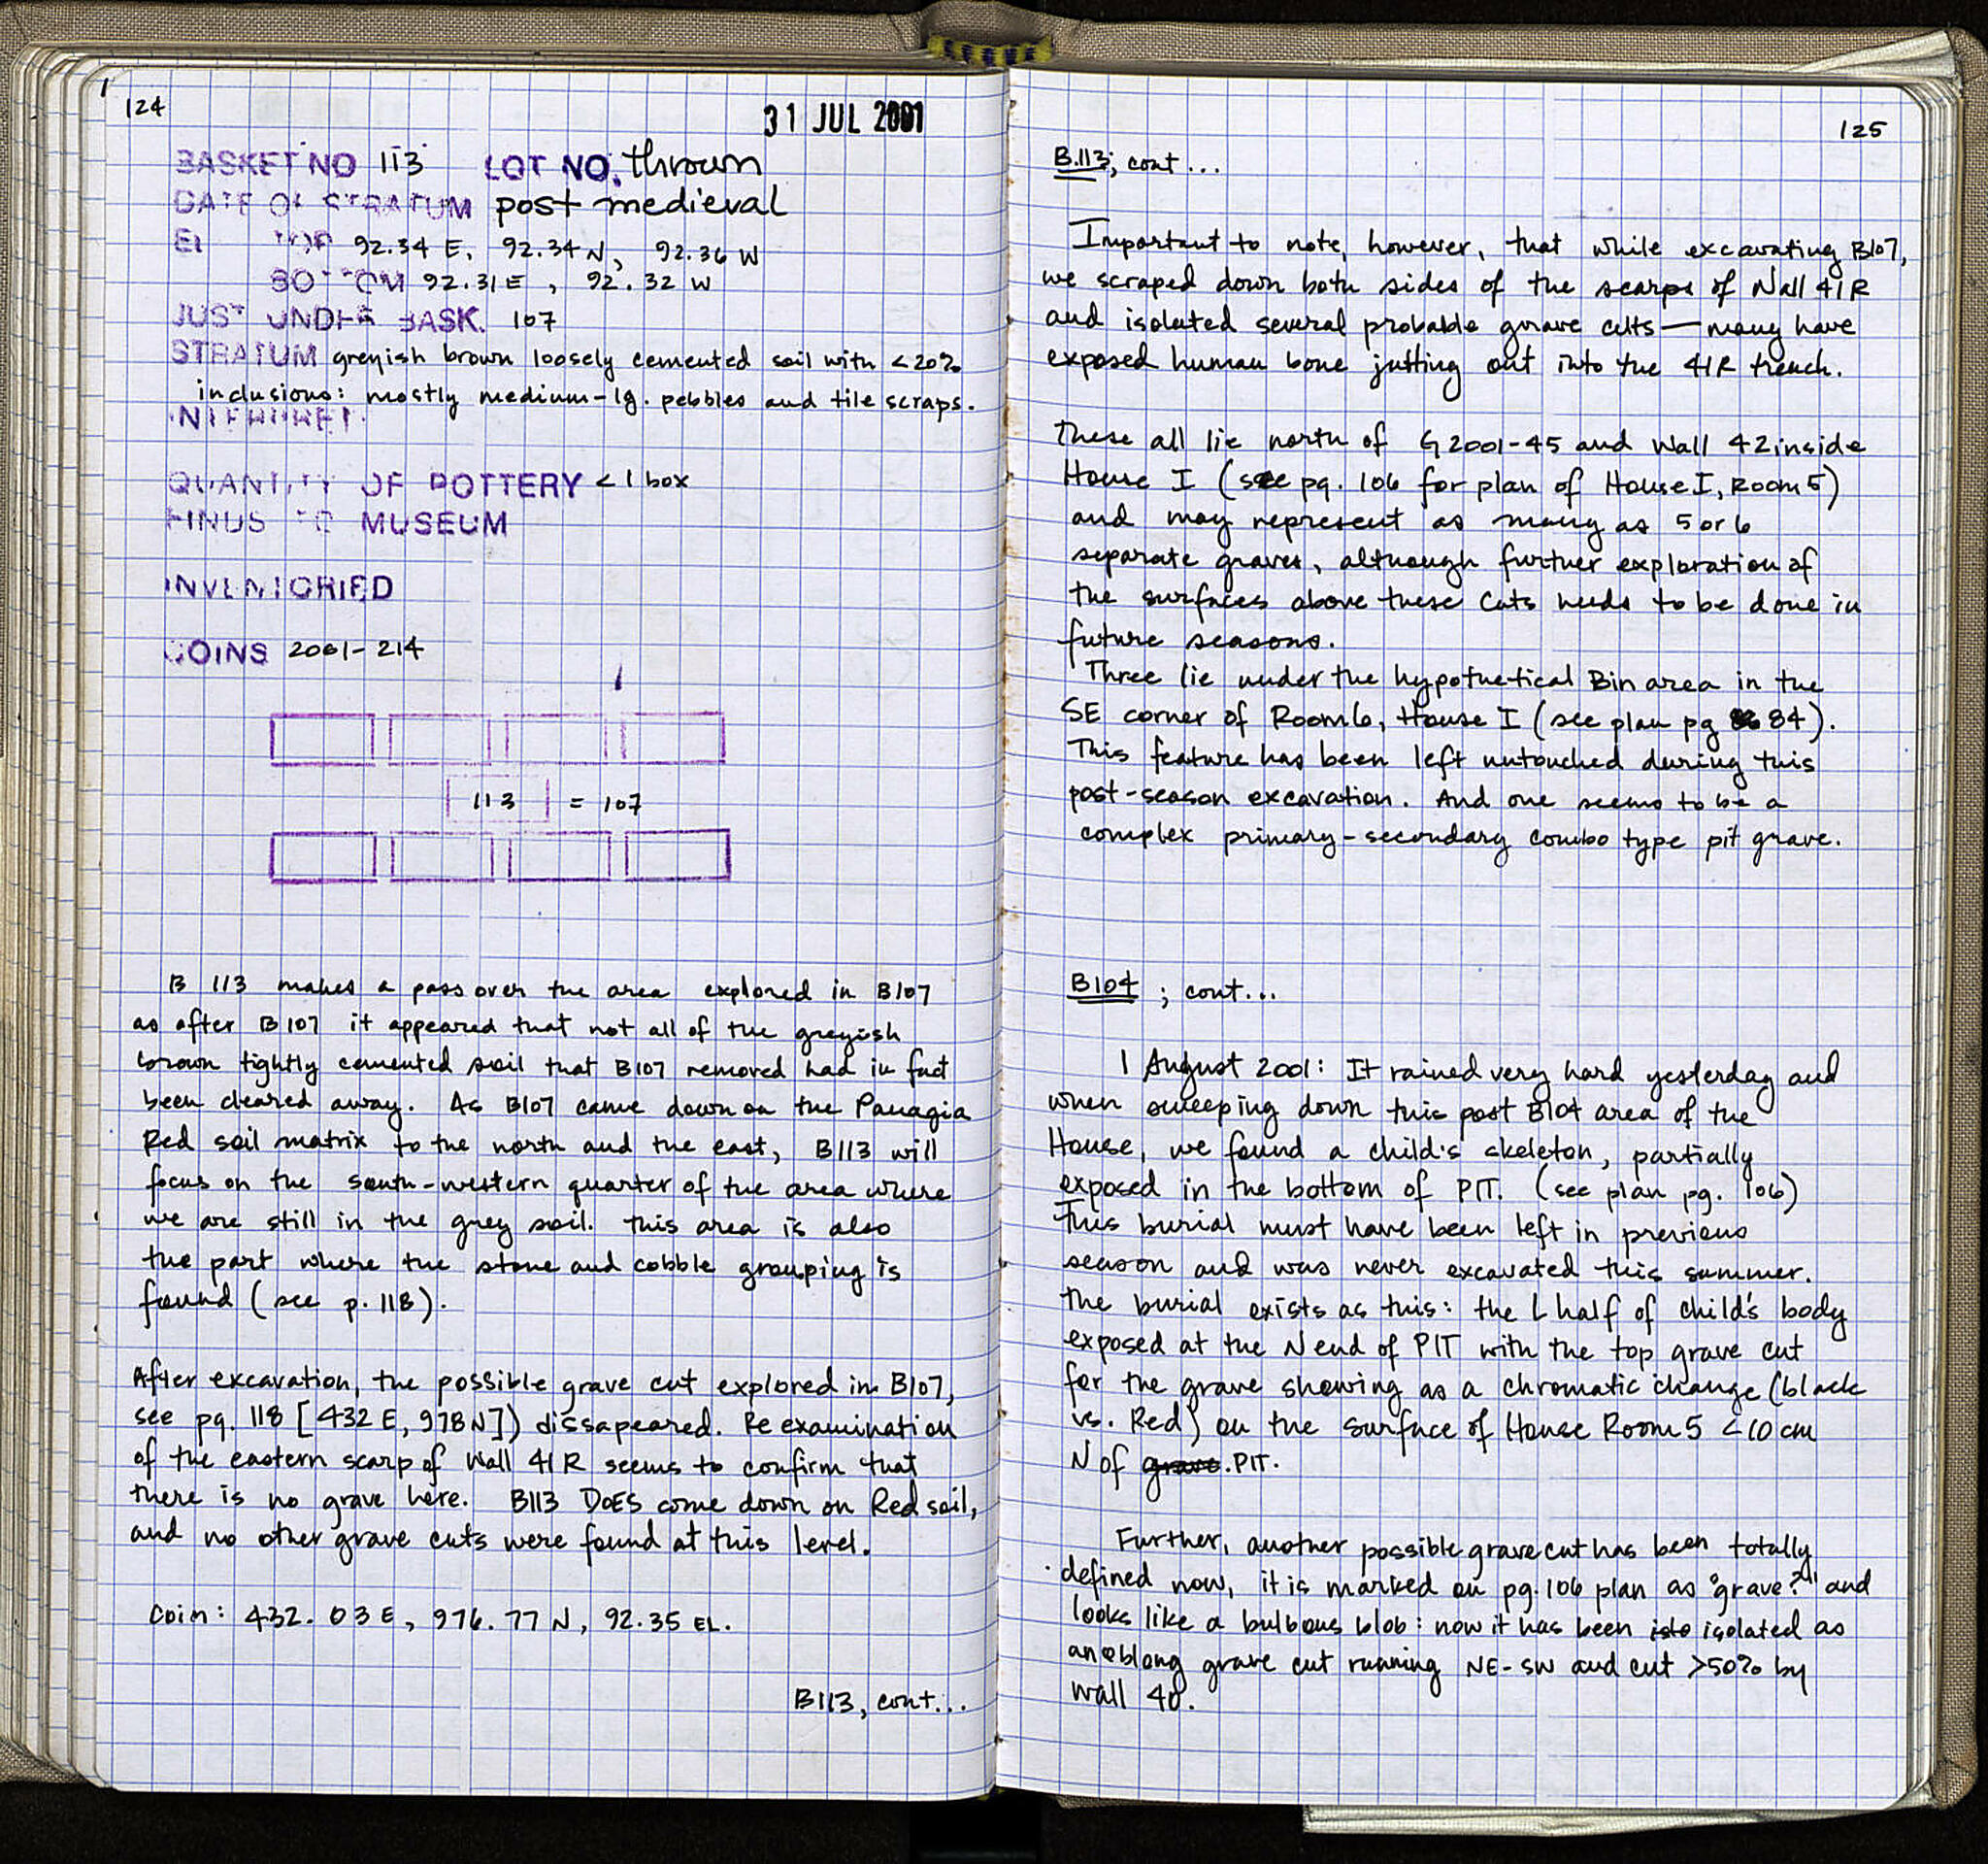 124
31 JUL 2001
BASKET NO 113 LOT NO. thrown
DATE OF STRATUM post medieval
EL TOP 92.34 E, 92.34 N, 92.36 W
BOTTOM 92.31 E, 92.32 W
JUST UNDER BASK. 107
STRATUM greyish brown loosely cemented soil with <20%
inclusions: mostly medium-lg. pebbles and tile scraps.
INTERPRET.
QUANTITY OF POTTERY <1 box
FINDS TO MUSEUM
INVENTORIED
COINS 2001-214
113 = 107
B 113 makes a pass over the area explored in B107
as after B107 it appeared that not all of the greyish
brown tightly cemented soil that B107 removed had in fact
been cleared away. As B107 came down on the Panagia
Red soil matrix to the north and the east, B113 will
focus on the south-western quarter of the area where
we are still in the grey soil. This area is also
the part where the stone and cobble grouping is
found (see p. 118).
After excavation, the possible grave cut explored in B107,
see pg. 118 [432 E, 978 N]) dissapeared. Re examination
of the eastern scarp of Wall 41R seems to confirm that
there is no grave here. B113 DOES come down on Red soil,
and no other grave cuts were found at this level.
Coin: 432.03 E, 976.77 N, 92.35 EL.
B113, cont...
125
B.113; cont...
Important to note, however, that while excavating B107,
we scraped down both sides of the scarps of Wall 41R
and isolated several probable grave cuts — many have
exposed human bone jutting out into the 41R trench.
These all lie north of G2001-45 and Wall 42 inside
House I (see pg. 106 for plan of House I, Room 5)
and may represent as many as 5 or 6
separate graves, although further exploration of
the surfaces above these cuts needs to be done in
future seasons.
Three lie under the hypothetical Bin area in the
SE corner of Room 6, House I (see plan pg 84).
This feature has been left untouched during this
post-season excavation. And one seems to be a
complex primary-secondary combo type pit grave.
B104; cont...
1 August 2001: It rained very hard yesterday and
when sweeping down this post B104 area of the
House, we found a child's skeleton, partially
exposed in the bottom of PIT. (see plan pg. 106)
This burial must have been left in previous
season and was never excavated this summer.
The burial exists as this: the L half of child's body
exposed at the N end of PIT with the top grave cut
for the grave showing as a chromatic change (black
vs. Red) on the surface of House Room 5 <10 cm
N of grave. PIT.
Further, another possible grave cut has been totally
defined now, it is marked on pg. 106 plan as "grave?" and
looks like a bulbous blob: now it has been isla isolated as
an oblong grave cut running NE-SW and cut >50% by
wall 40.